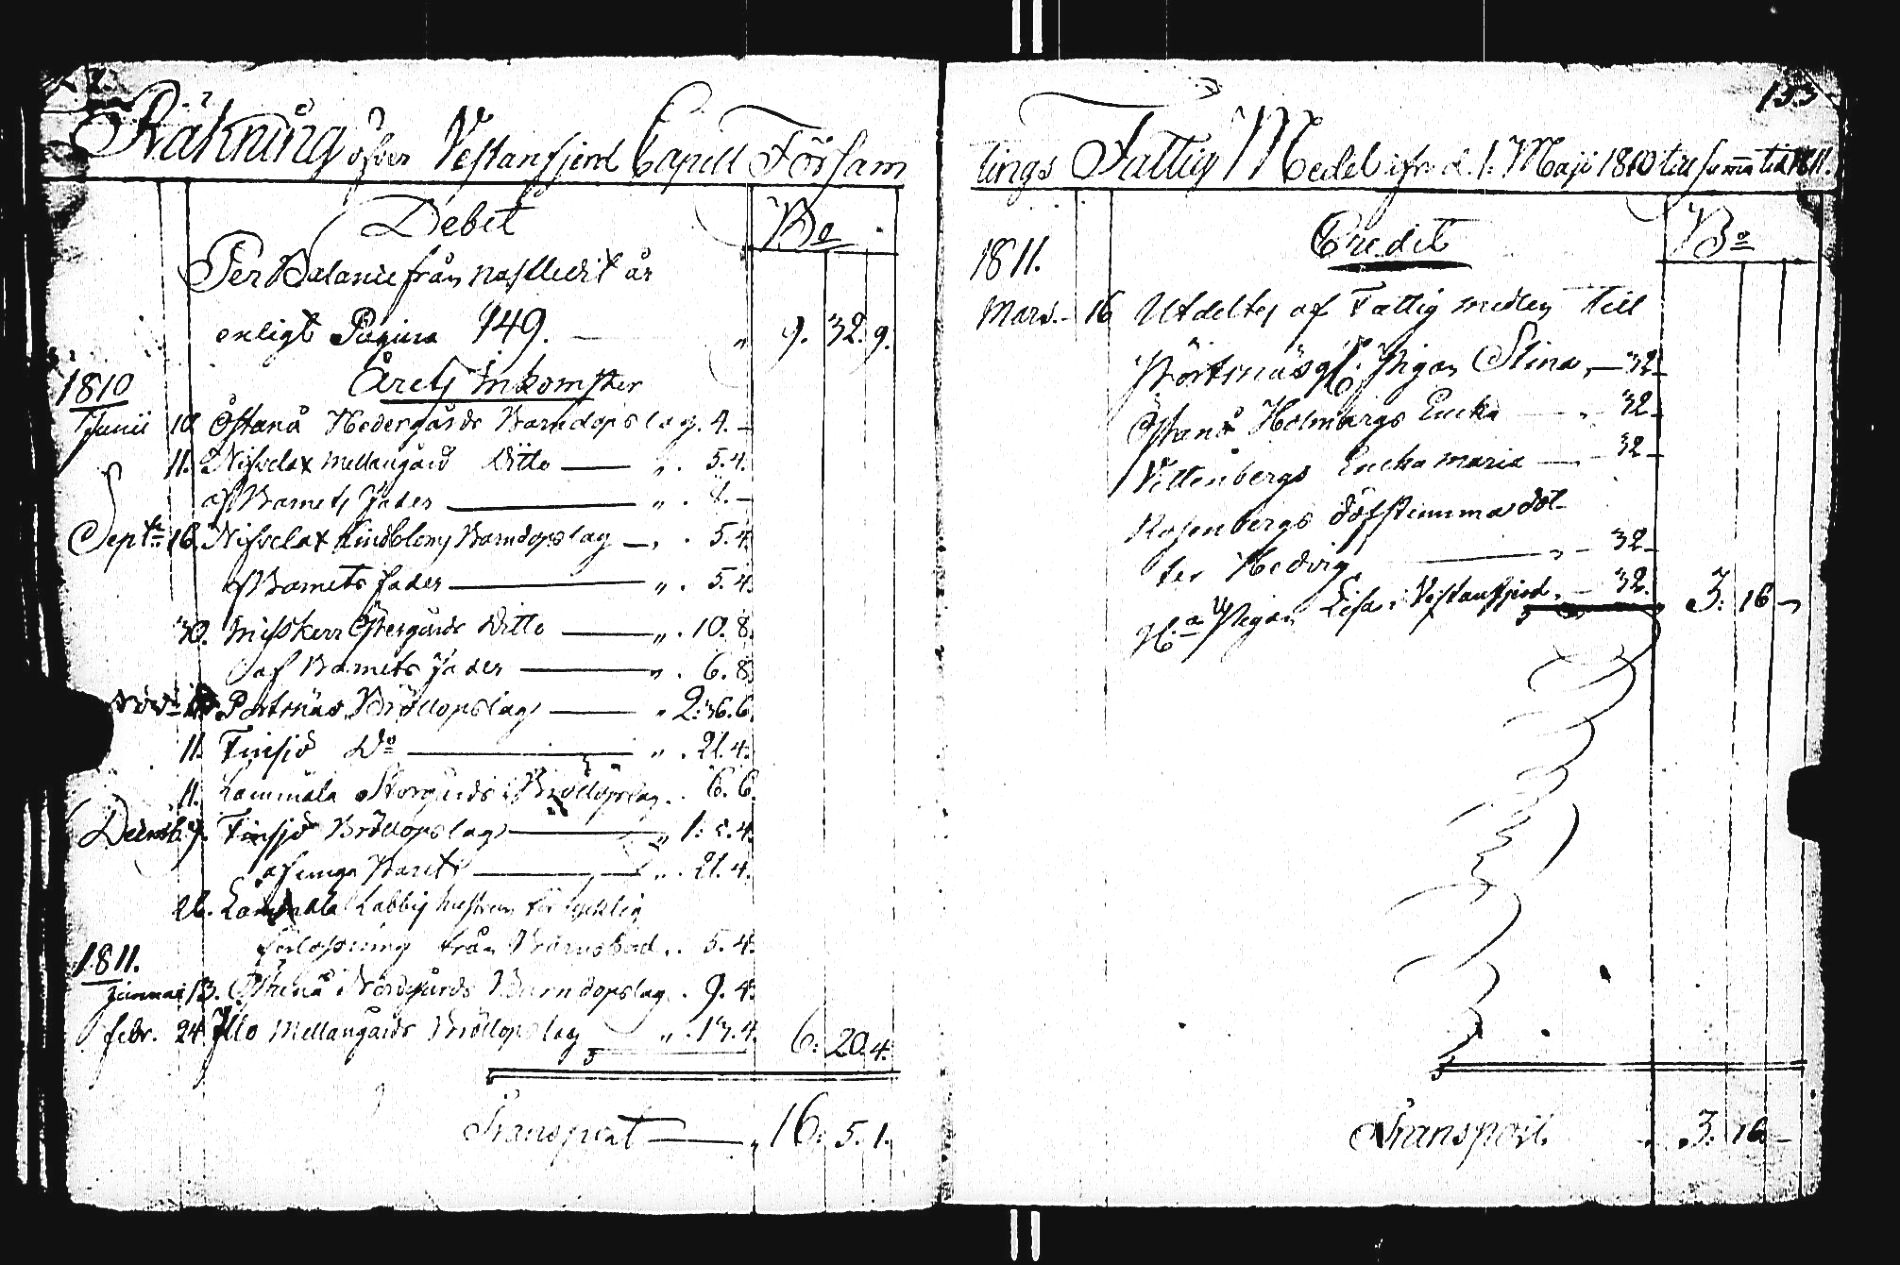 Räkning öfver Vestanfjerd Capell Församlings Fattig Medel ifrån d. 1. Maji 1810 till samma tid 1811.
153
Debet
Bo
Per Balance från nästledit år
enligt Pagina 149. — " 9. 32. 9.
1810 Årets Inkomster
Junii 10. Östanå Nedergårds Barndopslag. 4. —
11. Nifvelax mellangård Ditto — " . 5. 4.
af Barnets Fader — " . 8. —
Septr 16. Nifvelax Lindbloms Barndopslag — . 5. 4.
af Barnets Fader — " . 5. 4.
30. Misskerr Östergårds Ditto — " . 10. 8.
af Barnets Fader — " . 6. 8.
Novr Pörtsnäs Bröllopslag — " 2: 36. 6.
11. Finsjö Do — " . 21. 4.
11. Lammala Storgårds Bröllopslag . . 6. 6.
Decemb. 9. Finsjö Bröllopslag — " 1: 5. 4.
af unga Paret — " . 21. 4.
26. Lammala Labbis hustrun för lycklig
förlossning från Barnsbörd . . 5. 4.
1811.
Januar 13. Östanå Nordgårds Barndopslag . 9. 4.
febr. 24. Illo Mellangårds Bröllopslag " . 13. 4. 6. 20. 4.
Transport — " 16. 5. 1.
Credit
Bo
1811.
Mars. 16 Utdeltes af Fattig medlen till
Pörtsnäs Pigan Stina, — 32 —
Östanå Holmbergs Encka — . 32 —
Vittenbergs Encka maria — 32 —
Rosenbergs döfstumma dotter
Hedvig — " — 32 —
Pigan Lisa i Vestanfjerd. — 32. 3. 16 —
Transport. . 3. 16 —